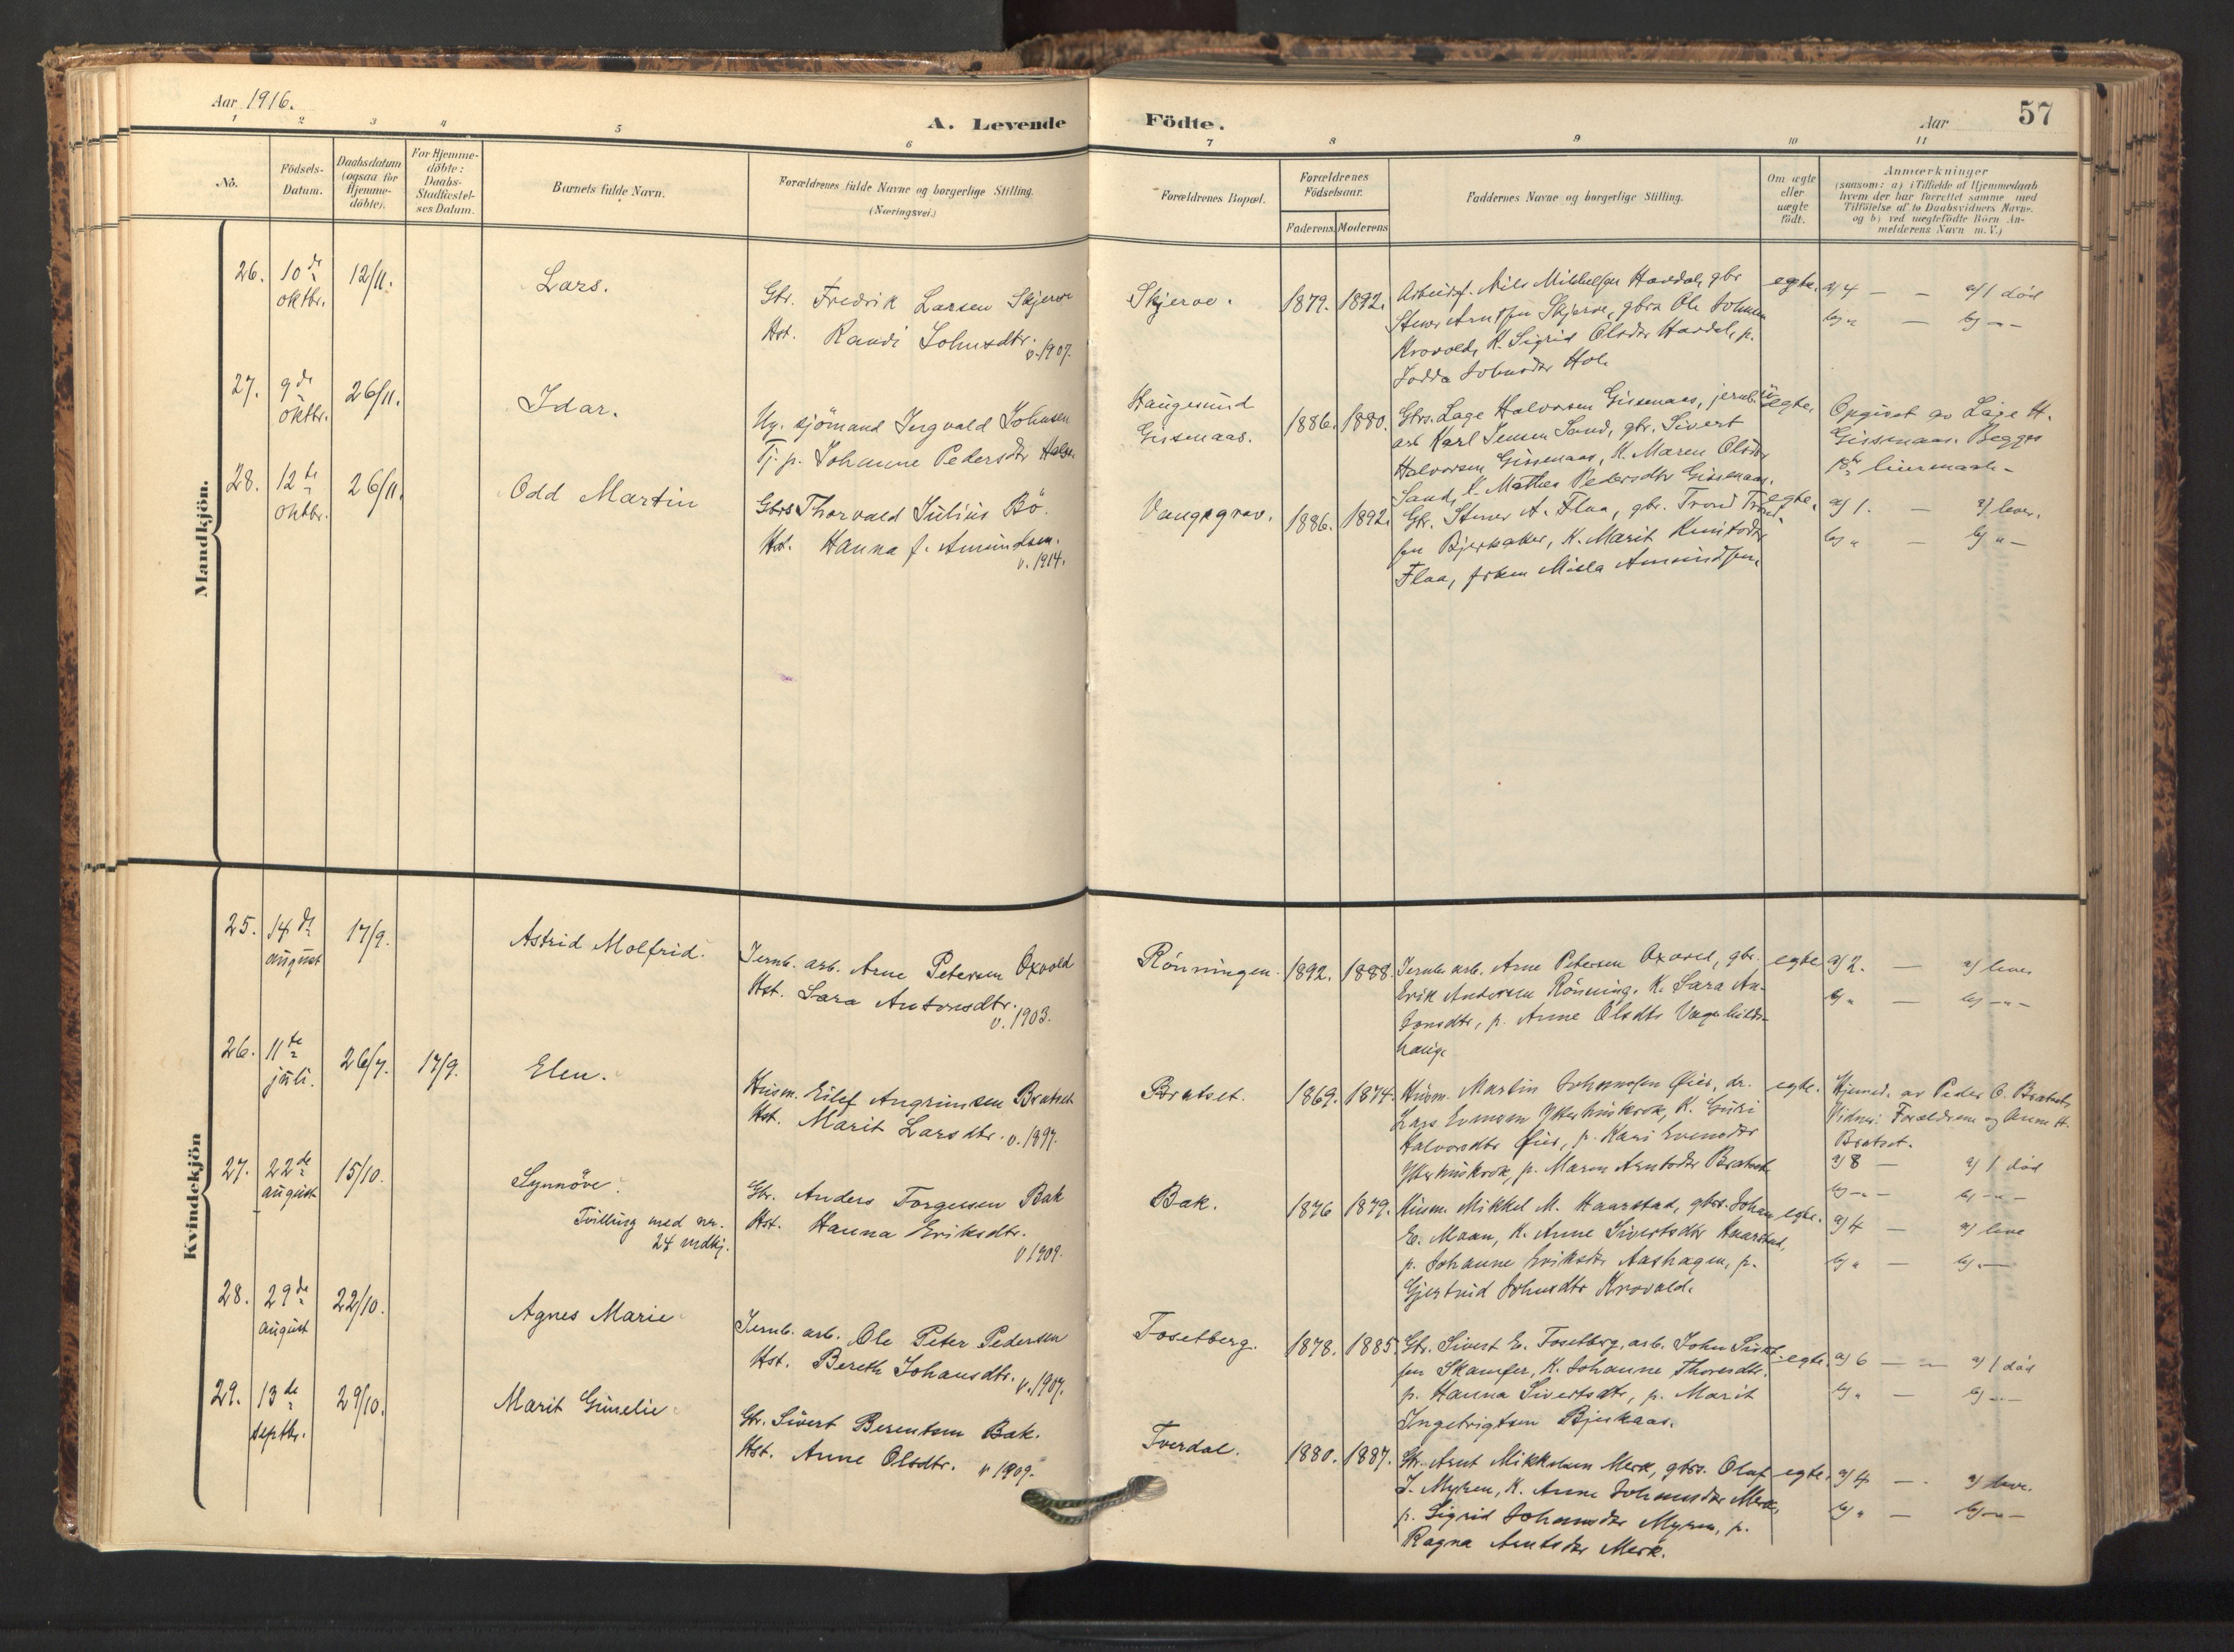 Aar 1916.
A. Levende Födte.
Aar
57
1 2 3 4 5 6 7 8 9 10 11
No.
Födsels-
Datum.
Daabsdatum
(ogsaa for
Hjemme-
döbte).
For Hjemme-
döbte:
Daabs-
Stadfæstel-
ses Datum.
Barnets fulde Navn.
Forældrenes fulde Navne og borgerlige Stilling.
(Næringsvei.)
Forældrenes Bopæl.
Forældrenes
Födselsaar.
Faderens. Moderens
Faddernes Navne og borgerlige Stilling.
Om ægte
eller
uægte
födt.
Anmærkninger
(saasom: a) i Tilfælde af Hjemmedaab
hvem der har forrettet samme med
Tilföielse af to Daabsvidners Navne.
og b) ved uægtefödte Börn An-
melderens Navn m. V.)
Mandkjön.
26. 10de oktbr. 12/11.
Lars.
Gbr. Fredrik Larsen Skjerve
Hst. Randi Johnsdtr.
v. 1907.
Skjerve.
1879. 1892.
Arbeidsf. Nils Mikkelsen Havdal, gbr
Stener Arntsen Skjerve, gbrs Ole Johnsen
Krovold, K. Sigrid Olsdtr Havdal, p.
Johnsdtr Hol
egte.
a/ 4 — — a/ 1 död
b/ " — b/ — " —
27. 9de oktbr. 26/11.
Idar.
Ug. sjömand Ingvald Johnsen
Tj. p. Johanne Pedersdtr
Haugesund
Gissenaas.
1886. 1880.
Gbrs. Lage Halvorsen Gissenaas, jernb.
arb Karl Jensen Sand, gbr. Sivert
Halvorsen Gissenaas, K. Maren Olsdtr
Sand, K. Mathea Pedersdtr Gissenaas.
uegte.
Opgivet av Lage H.
Gissenaas. Begges
28. 12te oktbr. 26/11.
Odd Martin
Gbrs Thorvald Julius Bö.
Hst. Hanna f. Amundsen.
v. 1914.
Vangsgrav.
1886. 1892.
Gbr. Stener A. Flaa, gbr. Trond Trond-
sen Bjerkaker, K. Marit Knutsdtr
Flaa, frken Milla Amundsen
egte.
a/ 1. — a/ lever.
b/ " — b/ " —
Kvindekjön
25. 14de august 17/9.
Astrid Molfrid.
Jernb. arb. Arne Petersen Oxvold
Hst. Sara Antonsdtr.
v. 1903.
Rönningen.
1892. 1888.
Jernb. arb. Arne Petersen Oxvold, gbr.
Erik Andersen Rönning, K. Sara An-
tonsdtr, p. Anne Olsdtr Vagnhilds-
hauge
egte
a/ 2. — a/ lever
b/ " — b/ — " —
26. 11te juli. 26/7. 17/9.
Elen.
Husm. Eilef Angrimsen Bratset
Hst. Marit Larsdtr. v. 1897.
Bratset.
1869. 1874.
Husm. Martin Johnsen Øien, dr.
Lars Evensen Ytterhuskrok, K. Guri
Halvorsdtr Øien, p. Kari Evensdtr
Ytterhuskrok, p. Maren Arntsdtr Bratset
egte.
Hjemed. av Peder O. Bratset
Vidner: Forældrene og Anne H.
Bratset.
a/ 8 — a/ 1 död
b/ — " — b/ — " —
27. 22de august 15/10.
Synnöve.
Tvilling med nr.
24 mdkj.
Gbr. Anders Torgersen Bak
Hst. Hanna Eriksdtr.
v 1909.
Bak.
1876 1879.
Husm. Mikkel M. Haarstad, gbrs. Johan
E. Moan, K. Anne Sivertsdtr Haarstad,
p. Johanne Eriksdtr Aashagen, p.
Gjertrud Johnsdtr Krovold.
egte.
a/ 4 — a/ leve
b/ " — b/ " —
28. 29de august 22/10.
Agnes Marie
Jernb. arb. Ole Peter Pedersen
Hst. Bereth Johansdtr.
v. 1907.
Fosetberg.
1878. 1885.
Gbr. Sivert E. Fosetberg, arb. John Sivert-
sen Skamfer, K. Johanne Thoresdtr.
p. Hanna Sivertsdtr, p. Marit
Ingebrigtsen Bjerkaas.
egte.
a/ 6 — — a/ 1 död
b/ " — b/ — " —
29. 13de septbr. 29/10.
Marit Gunelie
Gbr. Sivert Berentsen Bak.
Hst. Anne Olsdtr. v 1909.
Tverdal.
1880. 1887.
Gbr. Arnt Mikkelsen Merk, gbrs. Olaf
J. Myren, K. Anne Johannesdtr Merk,
p. Sigrid Johansdtr Myren, p.
Ragna Arntsdtr Merk.
egte.
a/ 4 — a/ leve.
b/ " — b/ — " —